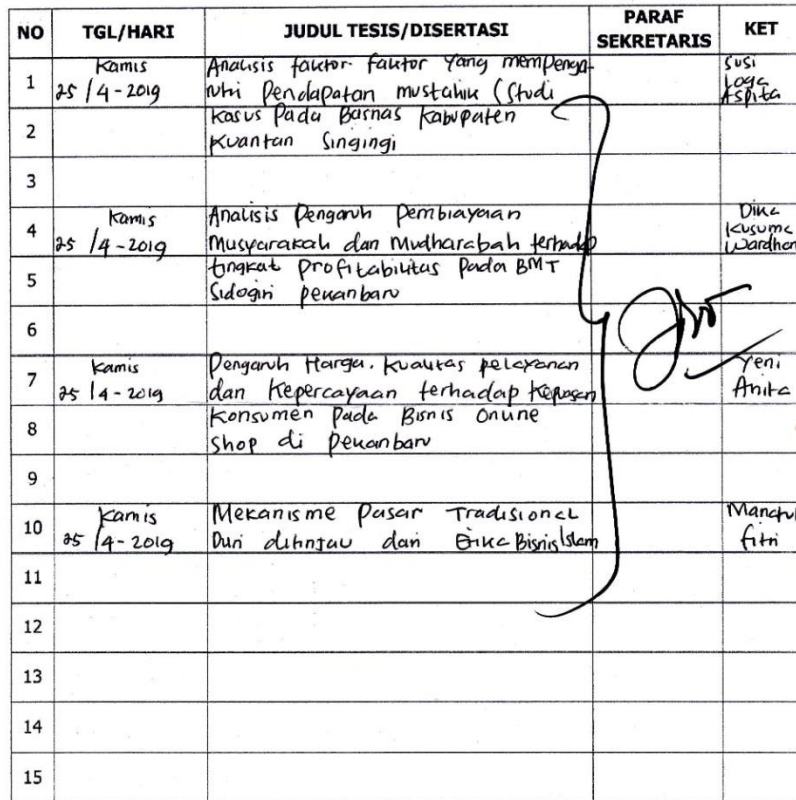 NO TGL/HARI JUDUL TESIS/DISERTASI PARAF SEKRETARIS KET
1 Kamis 25/4-2019 Analisis faktor-faktor yang mempenga- Susi
ruhi Pendapatan mustahik (Studi Loga Aspita
2 Kasus Pada Basnas Kabupaten
Kuantan Singingi
3
4 Kamis 25/4-2019 Analisis Pengaruh Pembiayaan Dika
Musyarakah dan Mudharabah terhadap Kusuma Wardhani
5 tingkat Profitabilitas Pada BMT
Sidogiri pekanbaru
6
7 Kamis 25/4-2019 Pengaruh Harga, Kualitas pelayanan Yeni
dan Kepercayaan terhadap Kepuasan Anita
8 Konsumen Pada Bisnis Online
Shop di Pekanbaru
9
10 Kamis 25/4-2019 Mekanisme Pasar Tradisional
Duri ditinjau dari Etika Bisnis Islam fitri
11
12
13
14
15